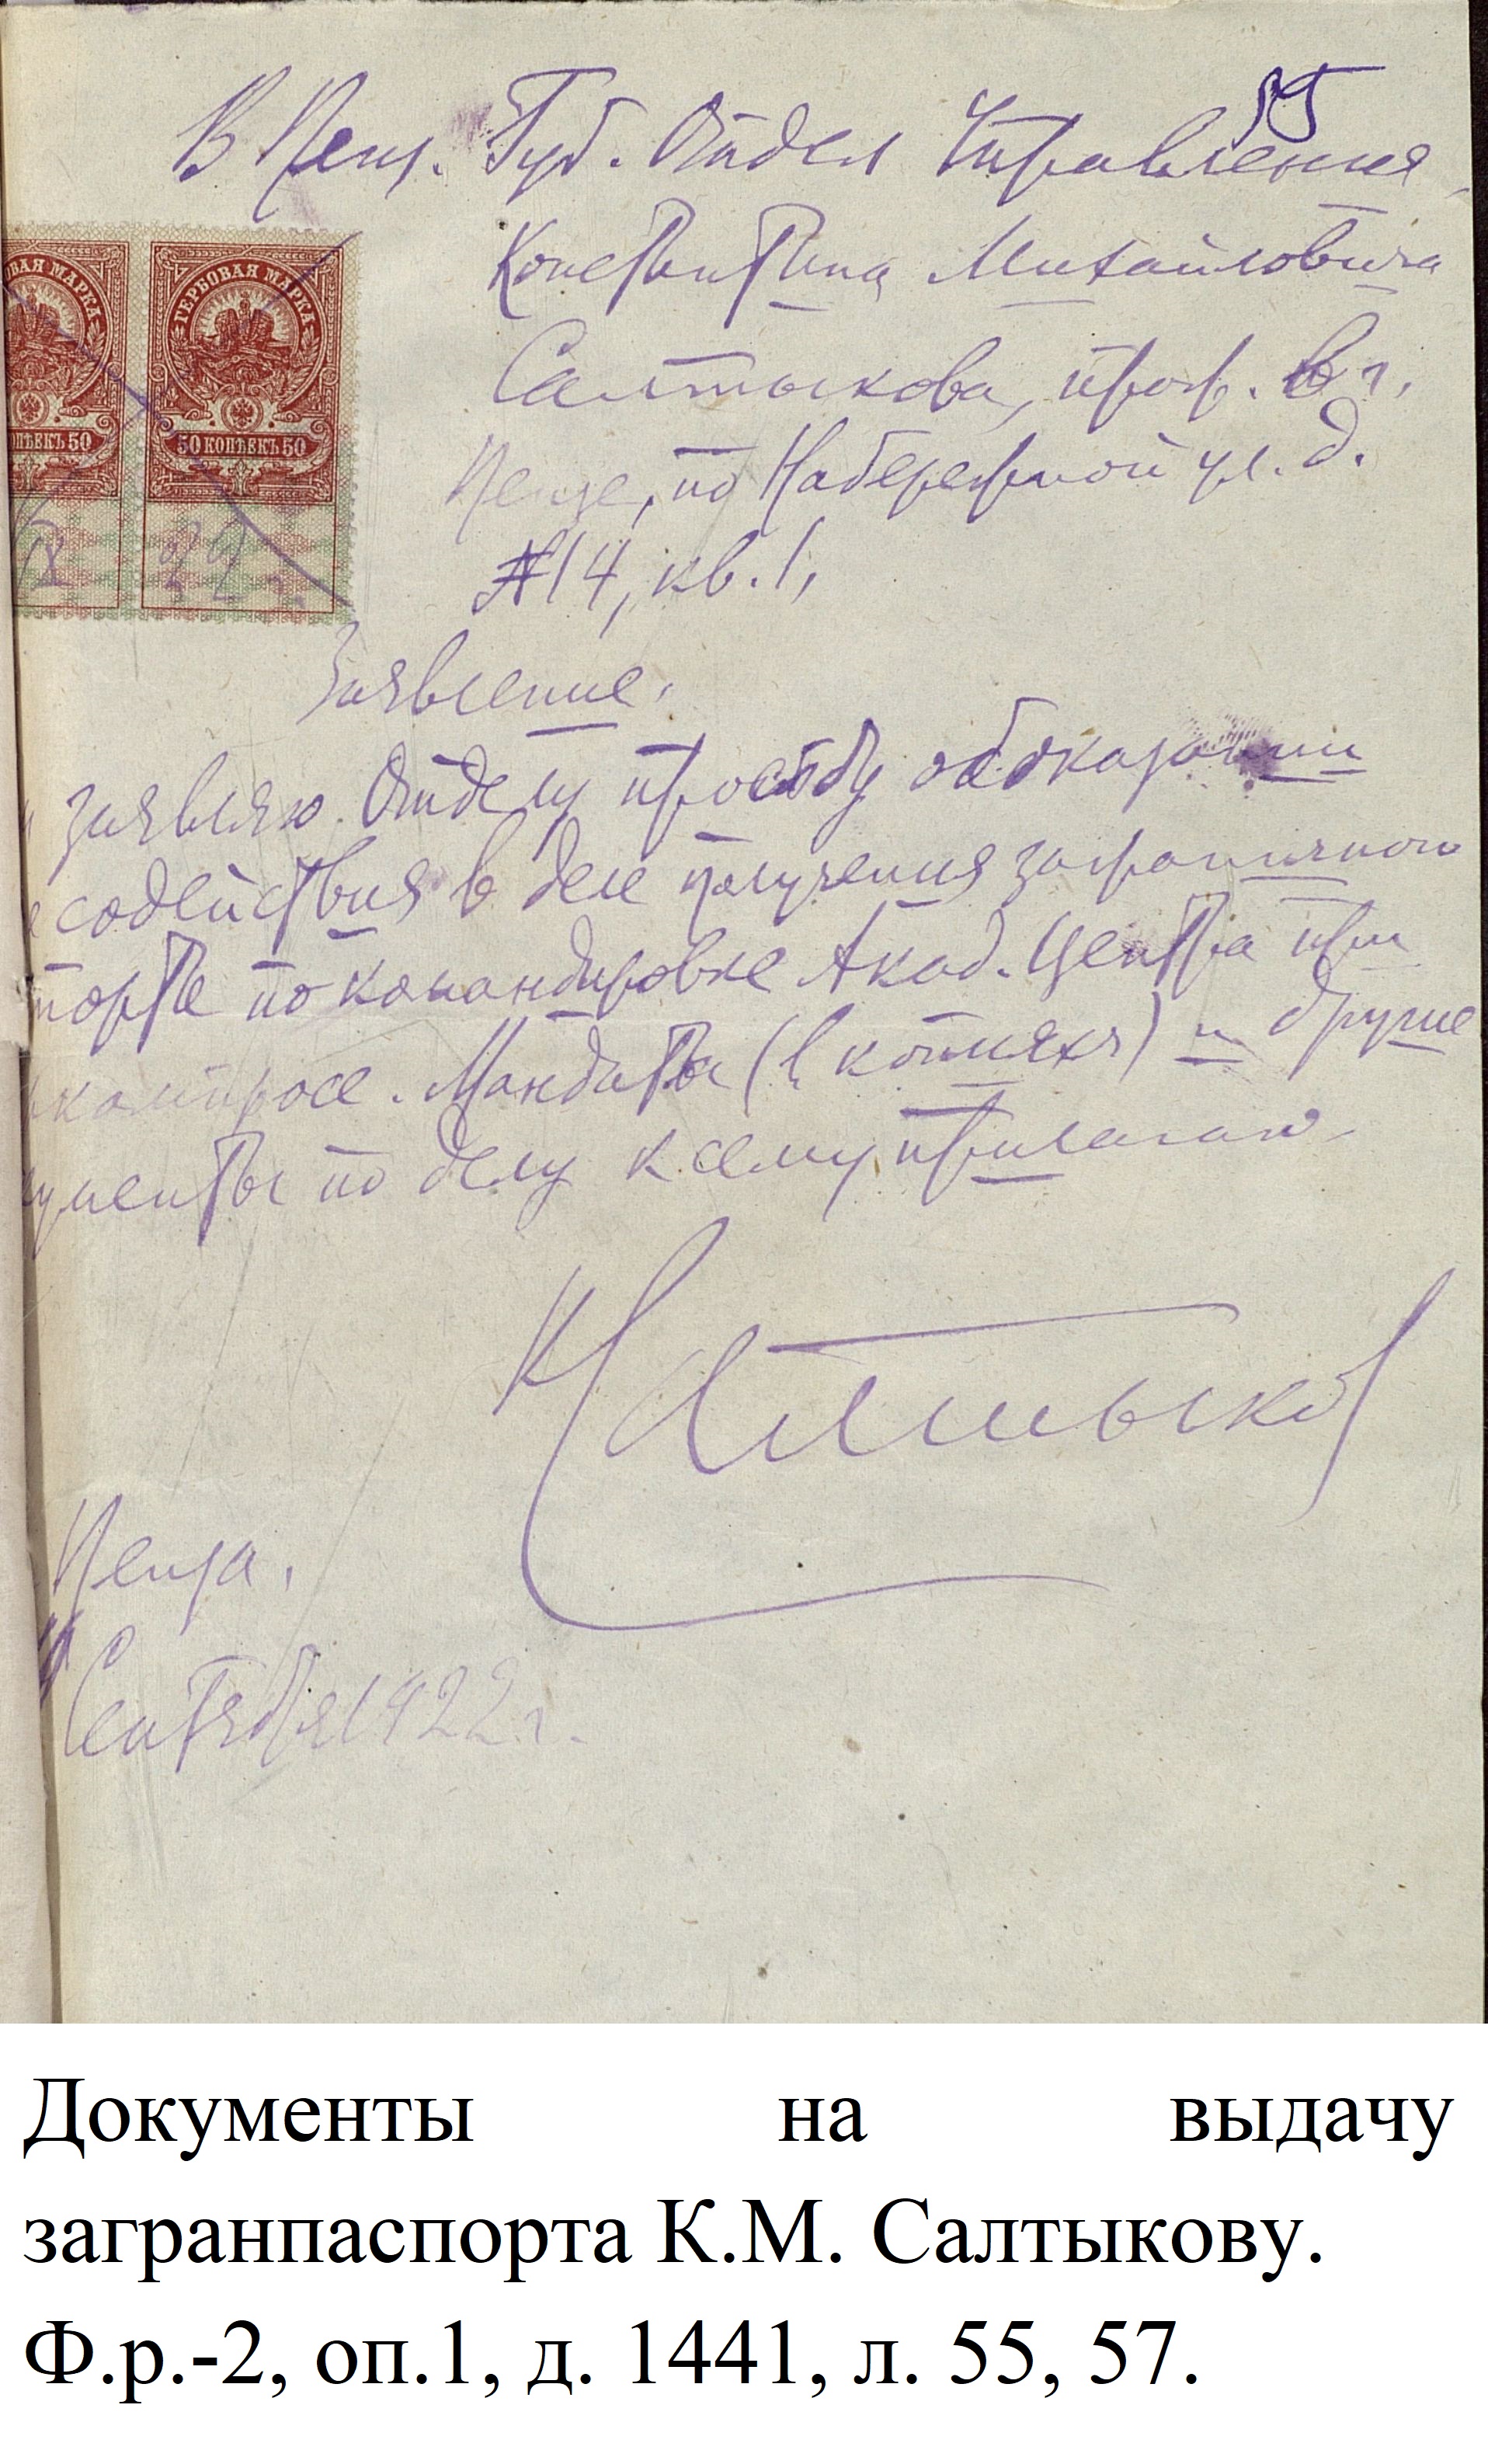 55
В Пенз. Губ. Отдел Управления
Константина Михайловича
Салтыкова, прож. в г.
Пензе, по Набережной ул. д.
№14, кв. 1,
ВАЯ МАРКА
ГЕРБОВАЯ МАРКА
ОПѢЕКЪ 50
50 КОПѢЕКЪ 50
IX 22
Заявление.
заявляю Отделу просьбу об оказании
содействия в деле получения заграничного
порта по командировке Акад. Центра при
компросе. Мандаты (в копиях) и другие
ументы по делу к сему прилагаю.
КСалтыков
Пенза,
Сентября 1922 г.
Документы на выдачу
загранпаспорта К.М. Салтыкову.
Ф.р.-2, оп.1, д. 1441, л. 55, 57.